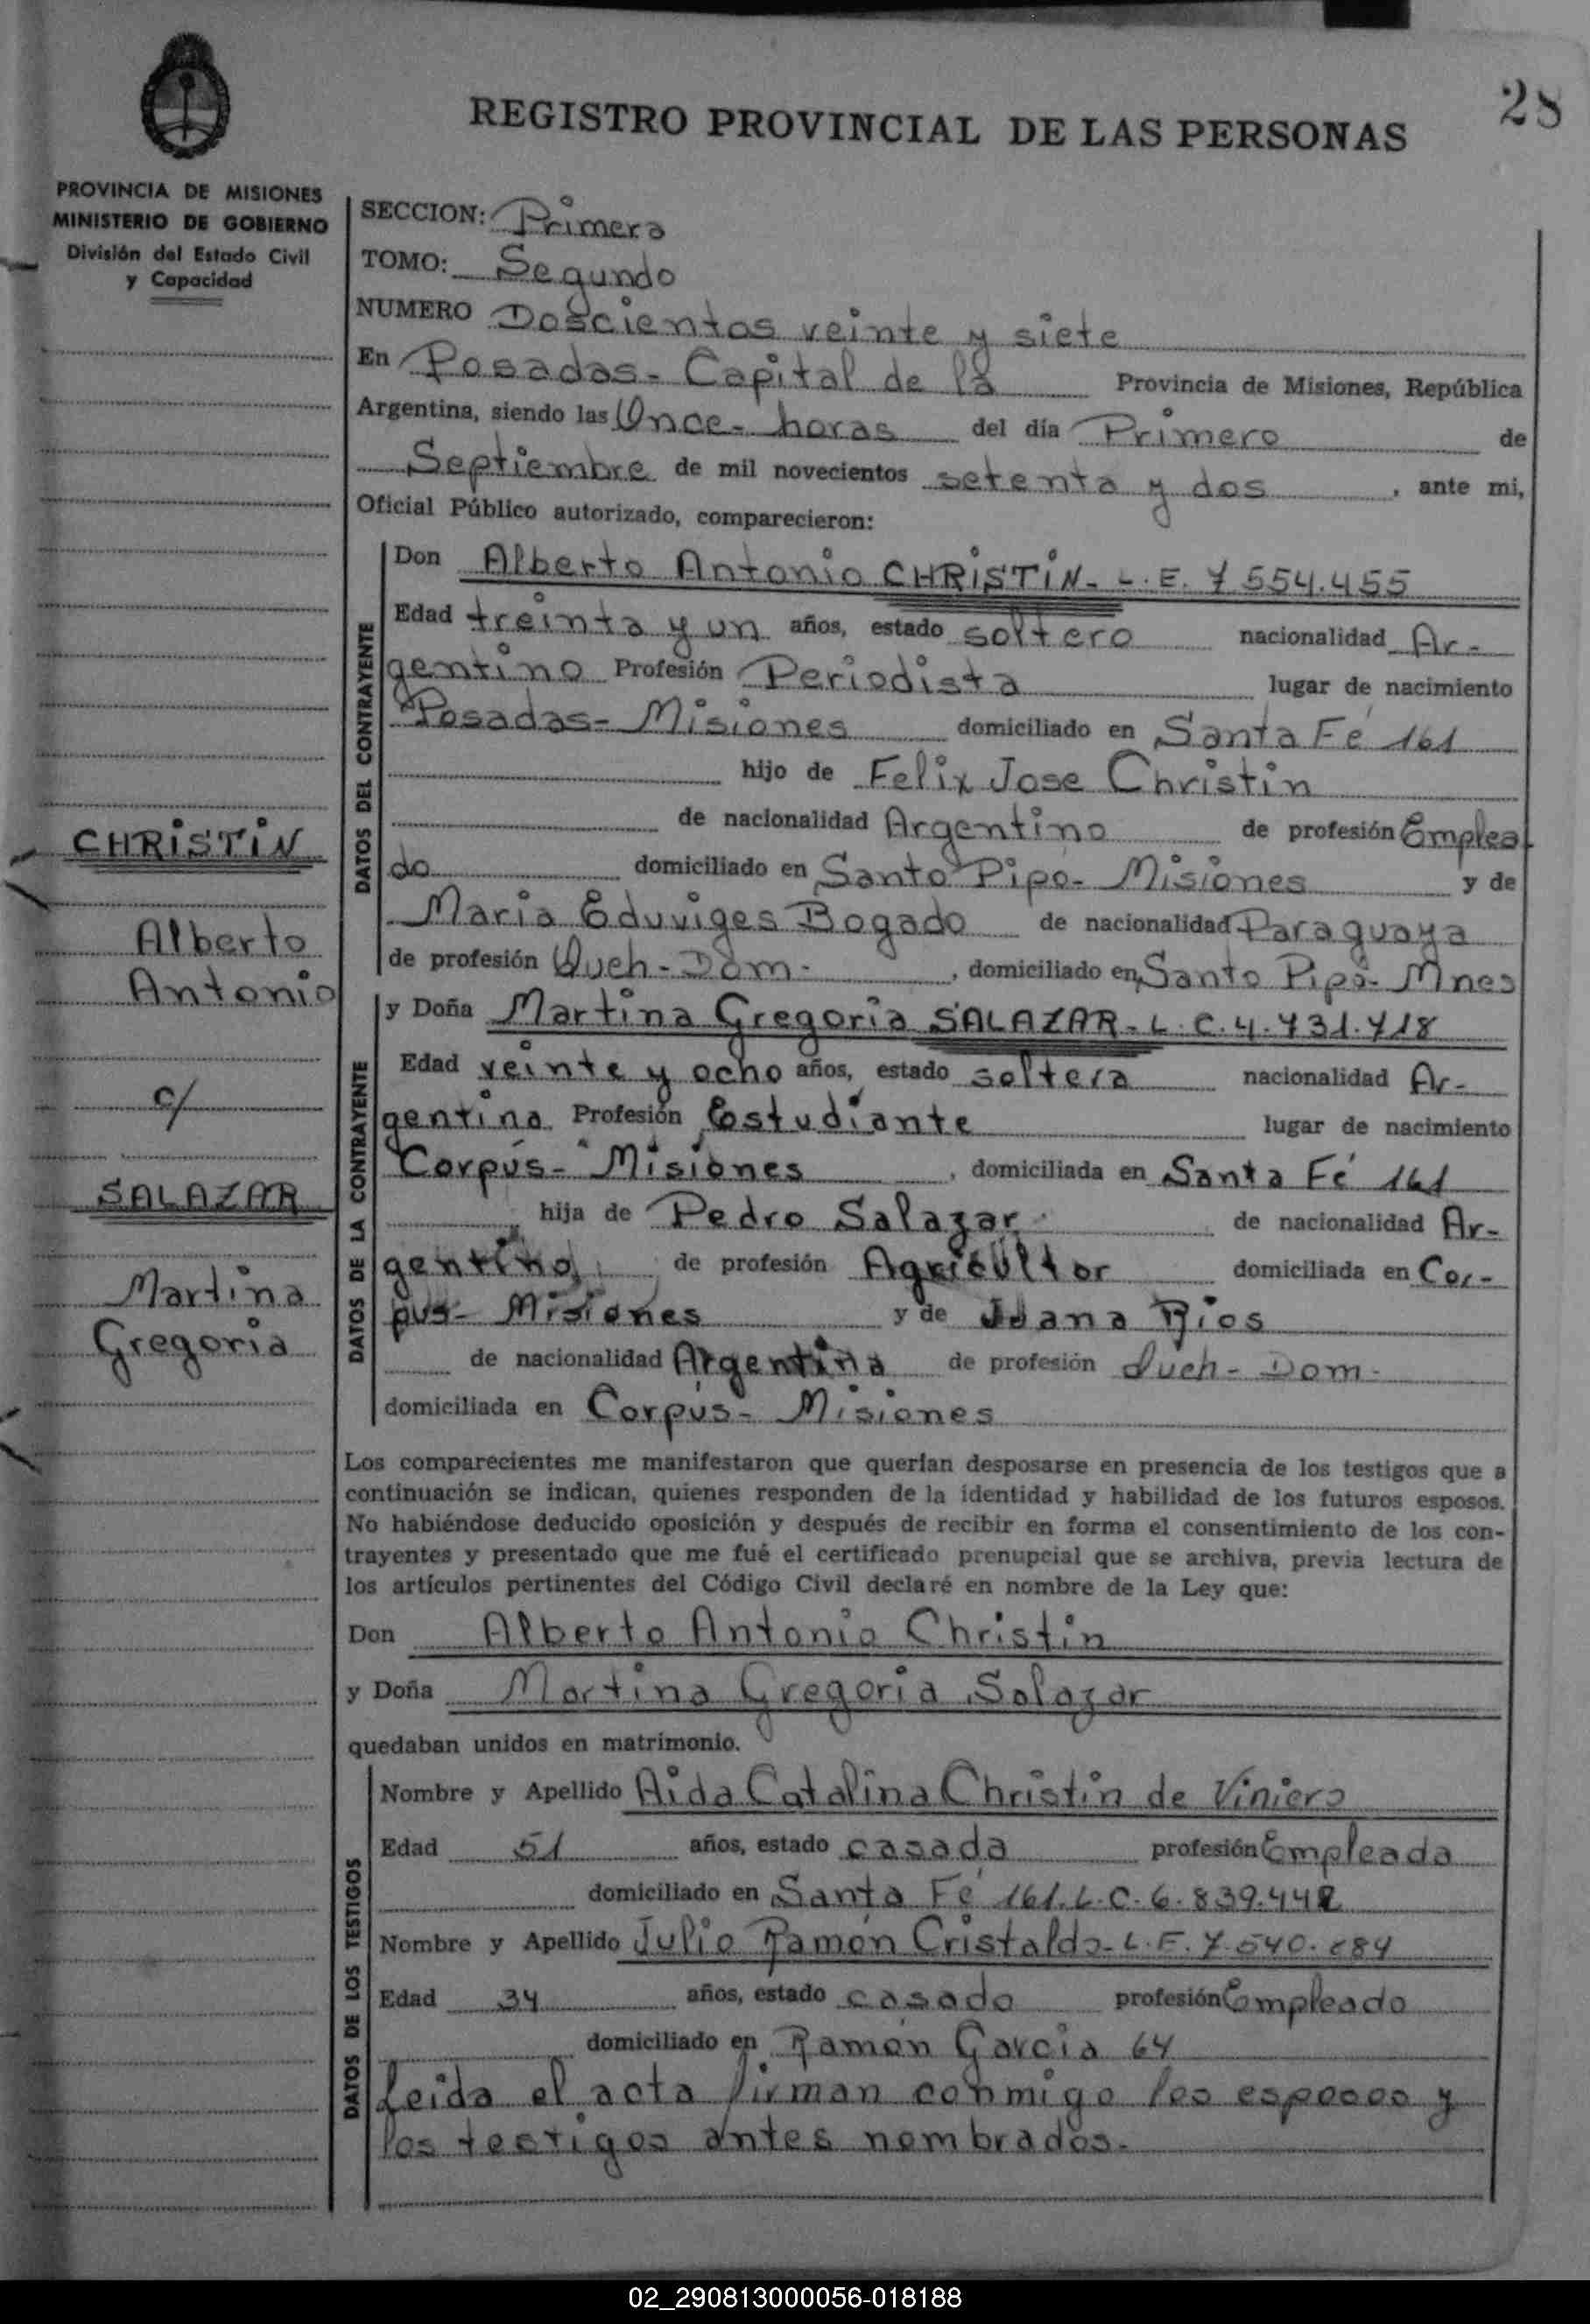 28
REGISTRO PROVINCIAL DE LAS PERSONAS
PROVINCIA DE MISIONES
MINISTERIO DE GOBIERNO
División del Estado Civil
y Capacidad
SECCION: Primera
TOMO: Segundo
NUMERO Doscientos veinte y siete
En Posadas- Capital de la Provincia de Misiones, República
Argentina, siendo las Once- horas del día Primero de
Septiembre de mil novecientos setenta y dos, ante mi,
Oficial Público autorizado, comparecieron:
DATOS DEL CONTRAYENTE
Don Alberto Antonio CHRISTIN- L.E. 7 554.455
Edad treinta y un años, estado soltero nacionalidad Ar-
gentino Profesión Periodista lugar de nacimiento
Posadas- Misiones domiciliado en Santa Fé 161
hijo de Felix Jose Christin
de nacionalidad Argentino de profesión Emplea
do domiciliado en Santo Pipó- Misiones y de
Maria Eduviges Bogado de nacionalidad Paraguaya
de profesión Queh-Dom-, domiciliado en Santo Pipó- Mnes
CHRISTIN
Alberto
Antonio
c/
SALAZAR
Martina
Gregoria
DATOS DE LA CONTRAYENTE
y Doña Martina Gregoria SALAZAR- L.C. 4.731.718
Edad veinte y ocho años, estado soltera nacionalidad Ar-
gentina Profesión Estudiante lugar de nacimiento
Corpús- Misiones, domiciliada en Santa Fé 161
hija de Pedro Salazar de nacionalidad Ar-
gentino, de profesión Agricultor domiciliada en Cor-
pus- Misiones y de Juana Rios
de nacionalidad Argentina de profesión Queh-Dom-
domiciliada en Corpús- Misiones
Los comparecientes me manifestaron que querían desposarse en presencia de los testigos que a
continuación se indican, quienes responden de la identidad y habilidad de los futuros esposos.
No habiéndose deducido oposición y después de recibir en forma el consentimiento de los con-
trayentes y presentado que me fué el certificado prenupcial que se archiva, previa lectura de
los artículos pertinentes del Código Civil declaré en nombre de la Ley que:
Don Alberto Antonio Christin
y Doña Martina Gregoria Salazar
quedaban unidos en matrimonio.
DATOS DE LOS TESTIGOS
Nombre y Apellido Aida Catalina Christin de Viniero
Edad 51 años, estado casada profesión Empleada
domiciliado en Santa Fé 161. L.C. 6.839.442
Nombre y Apellido Julio Ramón Cristaldo- L.E. 7.540.
Edad 34 años, estado casado profesión Empleado
domiciliado en Ramón Garcia 64
Leida el acta firman conmigo los esposos y
los testigos antes nombrados.-
02_290813000056-018188